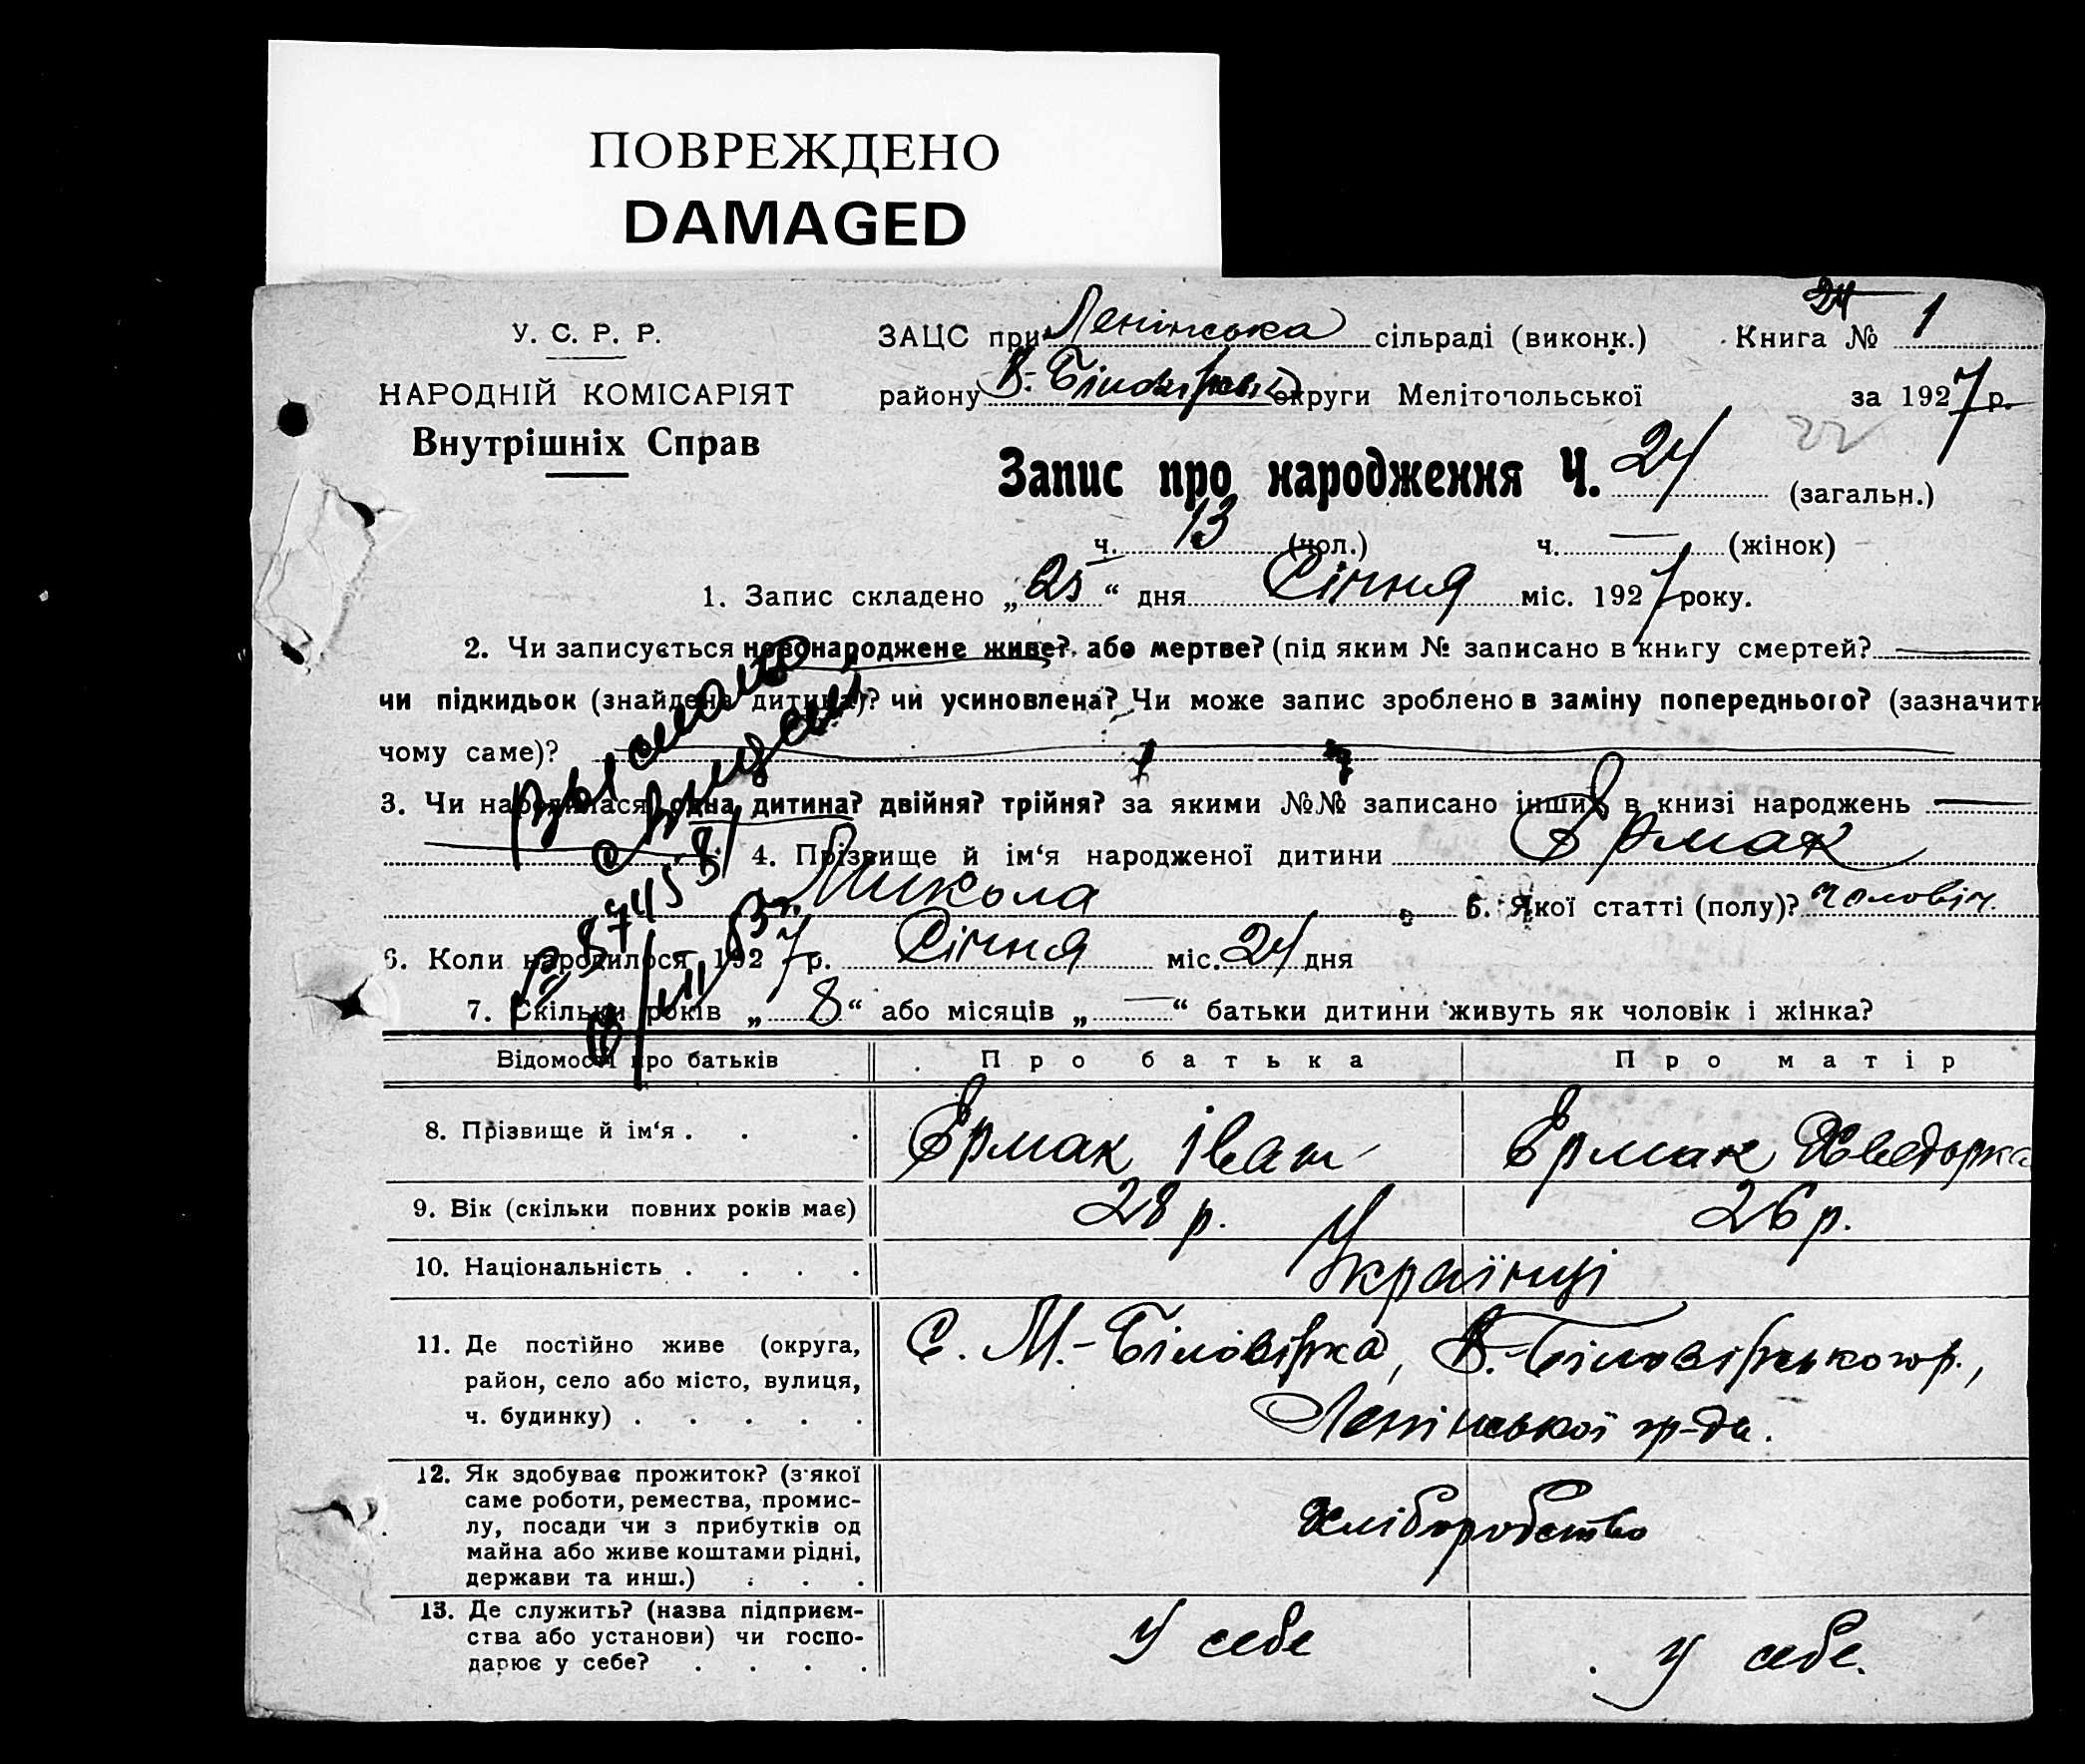 ПОВРЕЖДЕНО
DAMAGED
У. С. Р. Р.
НАРОДНІЙ КОМІСАРІЯТ
Внутрішніх Справ
ЗАЦС при Ленінська сільраді (виконк.)
Книга № 24 1
району В.- округи Мелітопольської
за 1927 р.
22
Запис про народження Ч. 24 (загальн.)
ч. 13 (чол.) ч. — (жінок)
1. Запис складено „25“ дня Січня міс. 1927 року.
2. Чи записується новонароджене живе? або мертве? (під яким № записано в книгу смертей? —
чи підкидьок (знайдена дитина)? чи усиновлена? Чи може запис зроблено в заміну попереднього? (зазначити
чому саме)?
3. Чи народилася одна дитина? двійня? трійня? за якими №№ записано інших в книзі народжень —
4. Прізвище й ім‘я народженої дитини Єрмак
Микола 5. Якої статті (полу)? чоловіч.
6. Коли народилося 1927 р. Січня міс. 24 дня
7. Скільки років „8“ або місяців „—“ батьки дитини живуть як чоловік і жінка?
Відомості про батьків Про батька Про матір
8. Прізвище й ім‘я . . . Єрмак Іван Єрмак Хведорка
9. Вік (скільки повних років має) 28 р. 26 р.
10. Національність . . . . Українці
11. Де постійно живе (округа,
район, село або місто, вулиця,
ч. будинку) . . . . .
С. М.-Білозірка, В.-Білозірського р.,
Ленінської гр-да.
12. Як здобуває прожиток? (з'якої
саме роботи, ремества, промис-
лу, посади чи з прибутків од
майна або живе коштами рідні,
держави та инш.) . . .
Хліборобство
13. Де служить? (назва підприєм-
ства або установи) чи госпо-
дарює у себе? . . . .
У себе У себе.